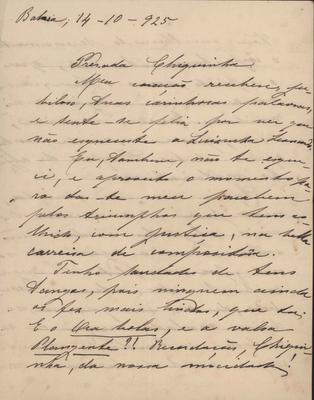 14-10-925
Prezada Chiquinha
Meu coração recebeu, ju-
biloso, tuas carinhosas palavras,
e sente-se feliz por ver que
não esqueceste a
Eu, tambem, não te esque-
ci, e aproveito o momento pa-
ra dar-te meus parabens
pelos triumphos que tens co-
lhido, com justiça, na bella
carreira de compositôra.
Tenho saudades de teus
Tangos, pois ninguem ainda
os fez mais lindos, que tu.
E o Ora bolas, e a valsa
Plangente!! Recordação, Chiqui-
nha, da nossa mocidade.